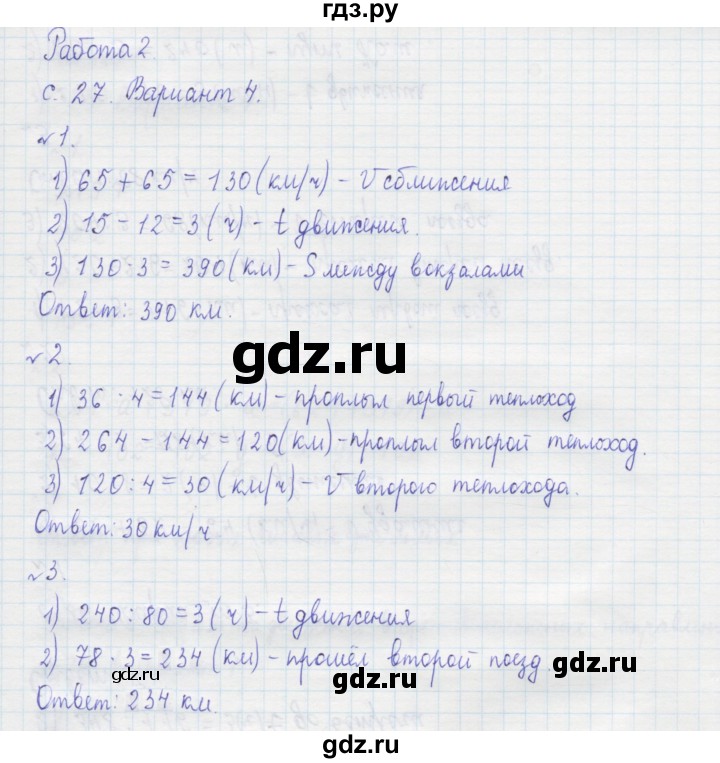 гдз.ру
Работа 2.
с. 27. Вариант 4.
№1.
1) 65 + 65 = 130 (км/ч) - V сближения
2) 15 - 12 = 3 (ч) - t движения.
3) 130 · 3 = 390 (км) - S между вокзалами
Ответ: 390 км.
gdz.ru
№2.
1) 36 · 4 = 144 (км) - проплыл первый теплоход
2) 264 - 144 = 120 (км) - проплыл второй теплоход.
3) 120 : 4 = 30 (км/ч) - V второго теплохода.
Ответ: 30 км/ч
№3.
1) 240 : 80 = 3 (ч) - t движения
2) 78 · 3 = 234 (км) - прошёл второй поезд
gdz.ru
gdz.ru
Ответ: 234 км.
gdz.ru